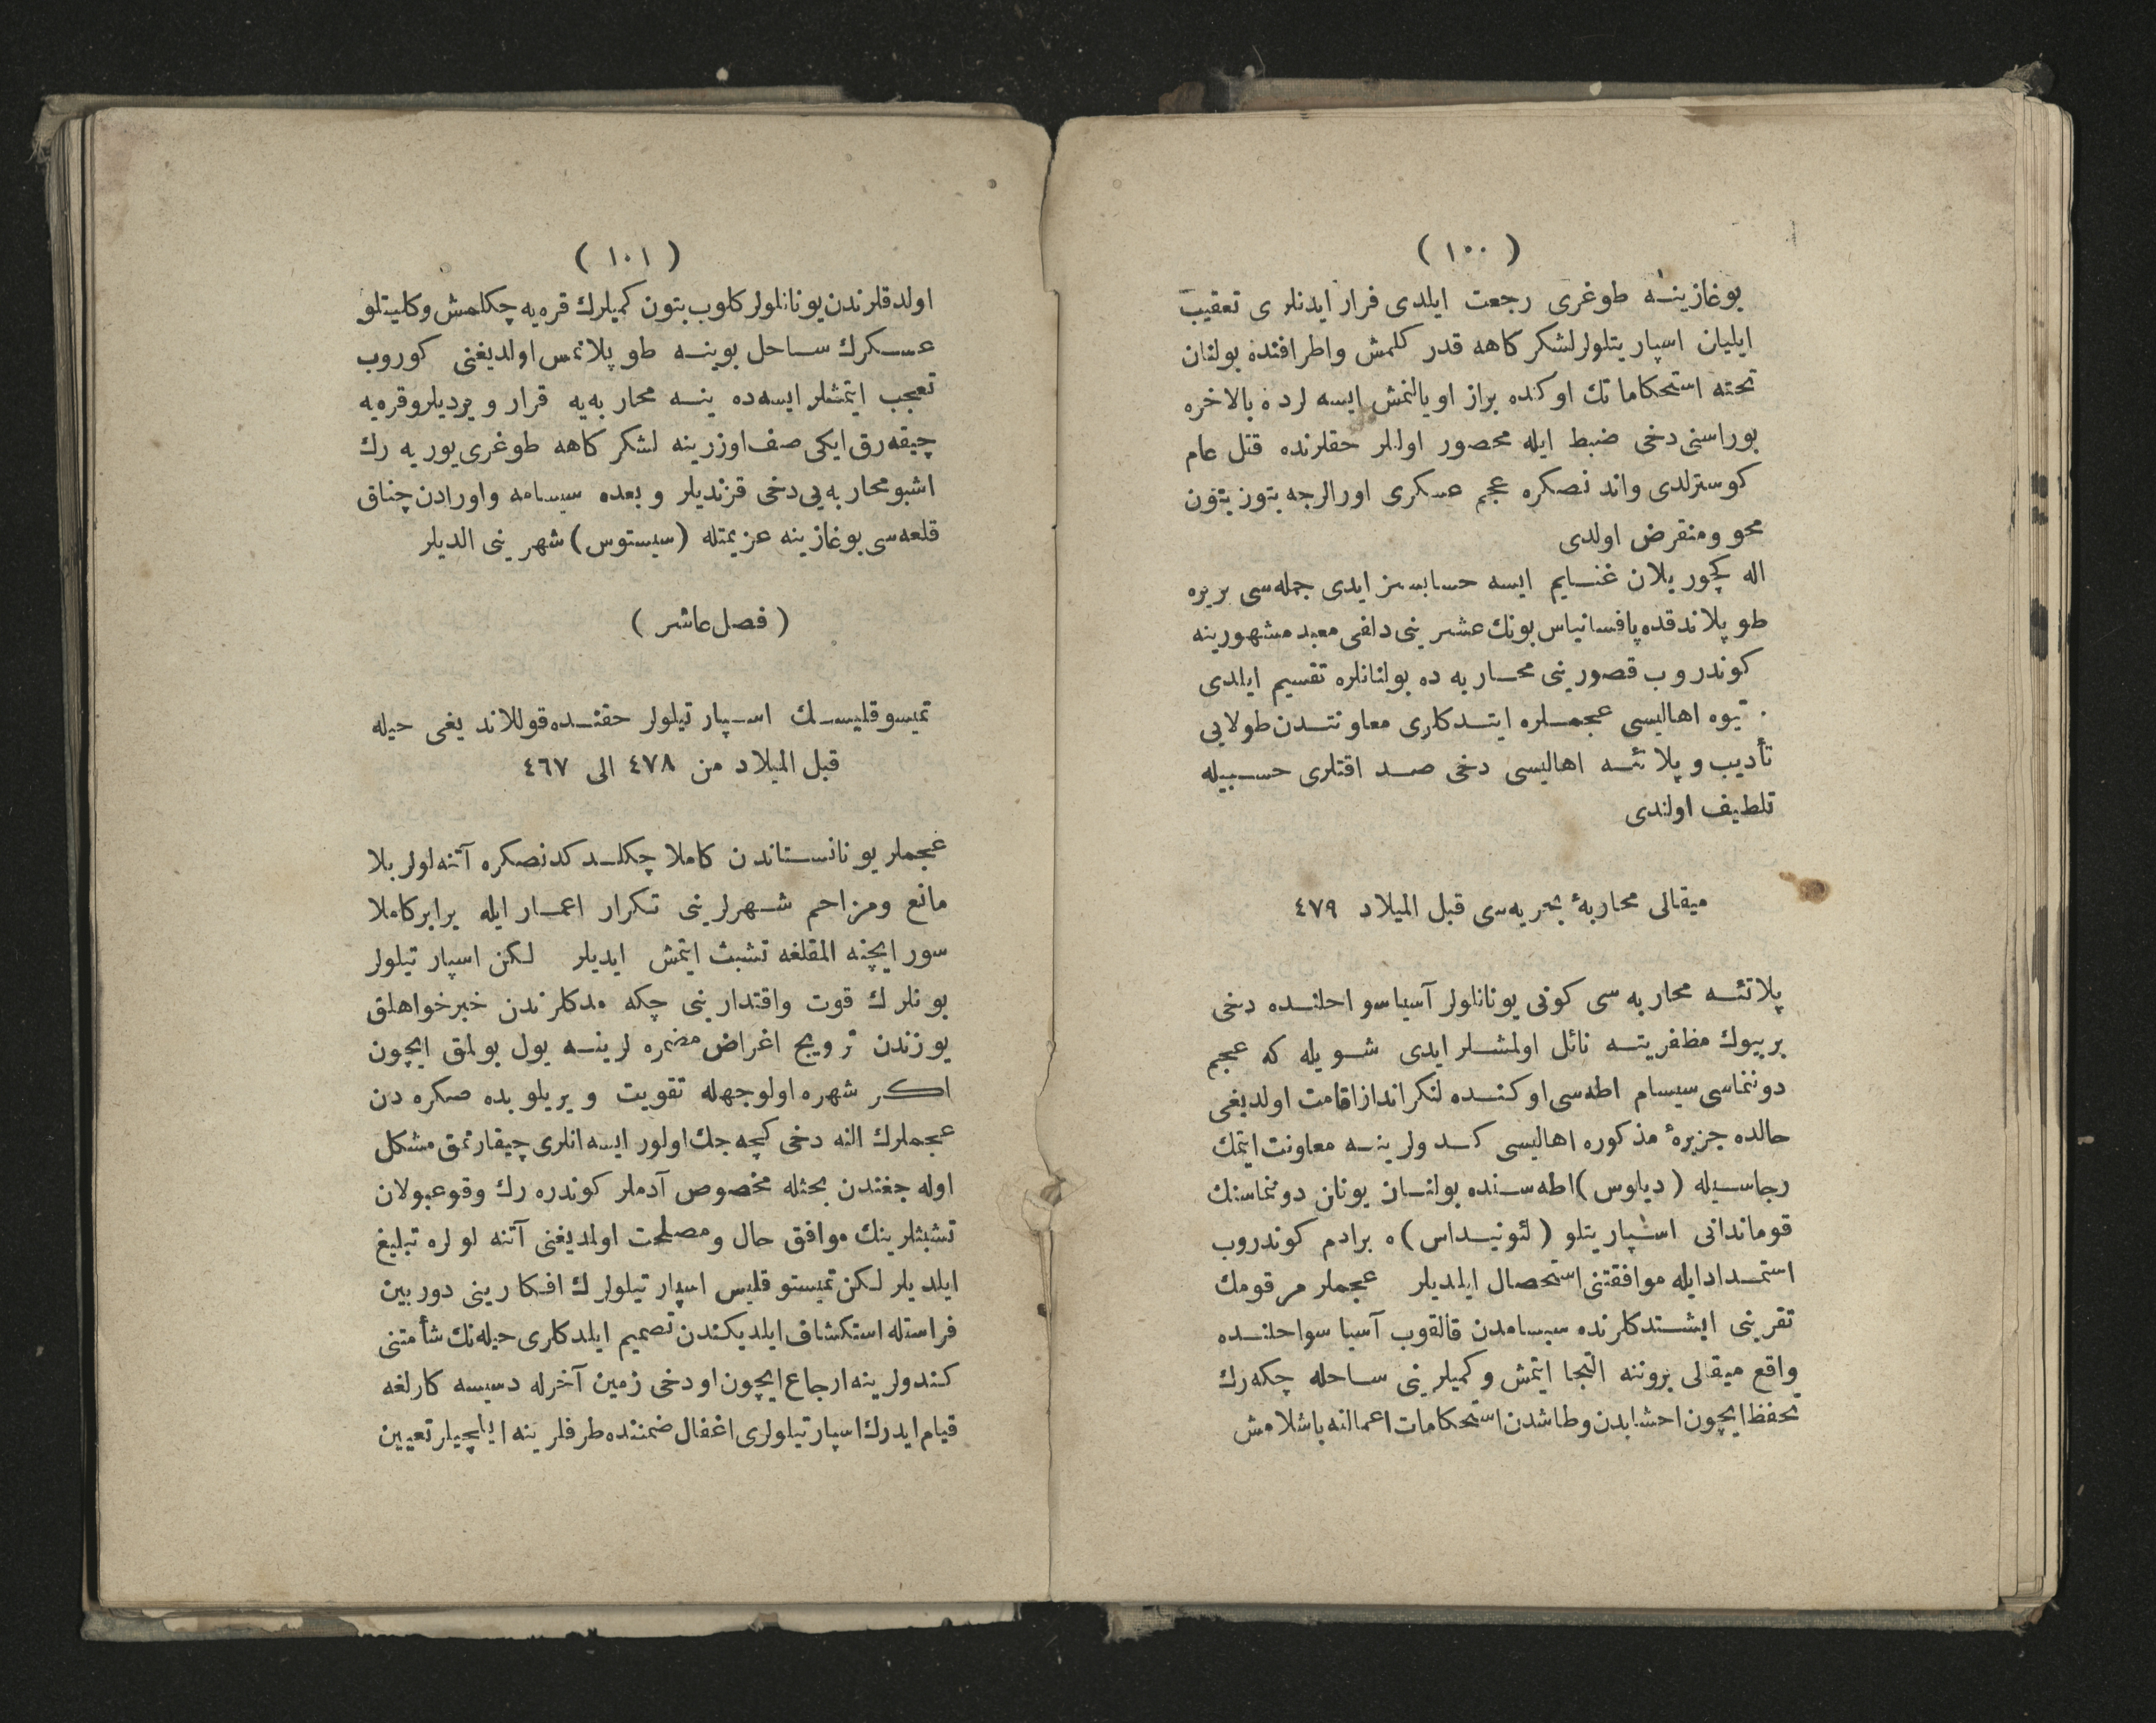 ( ١٠٠ )
بوغازینـه طوغری رجعت ایلدی فرار ایدنلری تعقیب
ایلیان اسپاریتلولر لشکرکاهه قدر کلمش واطرافنده بولنان
تخته استحکاماتك اوکنده براز اویالنمش ایسه لرده بالاخره
بوراسنی دخی ضبط ایله محصور اولنلر حقلرنده قتل عام
کوسترلدی واندنصکره عجم عسکری اورالرجه بتون بتون
محو ومنقرض اولدی
اله کچوریلان غنـایم ایسه حسابسز ایدی جمله سی بریره
طوپلاندقده پافسانیاس بونك عشرینی دلفی معبد مشهورینه
کوندروب قصورینی محـاربه ده بولنانلره تقسیم ایلدی
تیوه اهالیسی عجمـلره ایتـدکاری معاونتـدن طولایی
تأدیب وپلاتئـه اهالیسی دخی صـداقتلری حسـبیله
تلطیف اولندی
میقالی محاربهٔ بحریه سی قبل المیلاد ٤٧٩
پلاتئـه محاربه سی کونی یونانلولر آسیا سواحلنـده دخی
بربیوك مظفریتـه نائل اولمشـلر ایدی شـویله که عجم
دوننماسی سیسام اطه سی اوکنـده لنکر انداز اقامت اولدیغی
حالده جزیرهٔ مذکوره اهالیسی کـدولرینـه معاونت ایتمك
رجاسـیله (دیلوس) اطه سـنده بولنـان یونان دوننماسنك
قوماندانی اسپاریتلو (لئونیـداس)ه برادم کوندروب
استمـداد ایله موافقتنی استحصال ایلدیلر عجملر مرقومك
تقربنی ایشـتدکلرنده سیسامدن قالقوب آسیا سواحلنـده
واقع میقالی بروننه التجا ایتمش وکمیلرینی سـاحله چکه رك
تحفظ ایچون احشابدن وطاشدن استحکامات اعمالنه باشلامش
( ١٠١ )
اولدقلرندن یونانلولر کلوب بتون کمیلرك قره یه چکلمش وکلیتلو
عسـکرك سـاحل بوینـه طوپلانمس اولدیغنی کوروب
تعجب ایتمشلر ایسه ده ینـه محاربه یه قرار ویردیلر وقره یه
چیقه رق ایکی صف اوزرینه لشکرکاهه طوغری یوریه رك
اشبو محاربه یی دخی قزندیلر وبعده سیسامه واورادن چناق
قلعه سی بوغازینه عزیمتله (سیستوس) شهرینی الدیلر
( فصل عاشر )
تمیسوقلیسـك اسـپارتیلولر حقنـده قوللاندیغی حیله
قبل المیلاد من ٤٧٨ الی ٤٦٧
عجملر یونانسـتاندن کاملا چکلـدکدنصکره آتنه لولر بلا
مانع ومزاحم شـهرلرینی تـکرار اعمـار ایله برابر کاملا
سور ایچنه المقلغه تشبث ایتمش ایدیلر لـکن اسپارتیلولر
بونلرك قوت واقتدارینی چکه مدکلرندن خیرخواهلق
یوزندن ترویج اغراض مضمره لرینـه یول بولمق ایچون
اکـر شهره اولوجهله تقویت ویریلوبده صکره دن
عجملرك النه دخی کچه جك اولور ایسه انلری چیقارتمق مشکل
اوله جغندن بحثله مخصوص آدملر کوندره رك وقوعبولان
تشبثلرینك موافق حال ومصلحت اولمدیغنی آتنه لولره تبلیغ
ایلدیلر لـکن تمیستوقلیس اسپارتیلولرك افـکارینی دوربین
فراستله استکشاف ایلدیکندن تصمیم ایلدکاری حیله نك شأمتنی
کندولرینه ارجاع ایچون اودخی زمین آخرله دسیسه کارلغه
قیام ایدرك اسپارتیلولری اغفال ضمننده طرفلرینه ایلچیلر تعیین